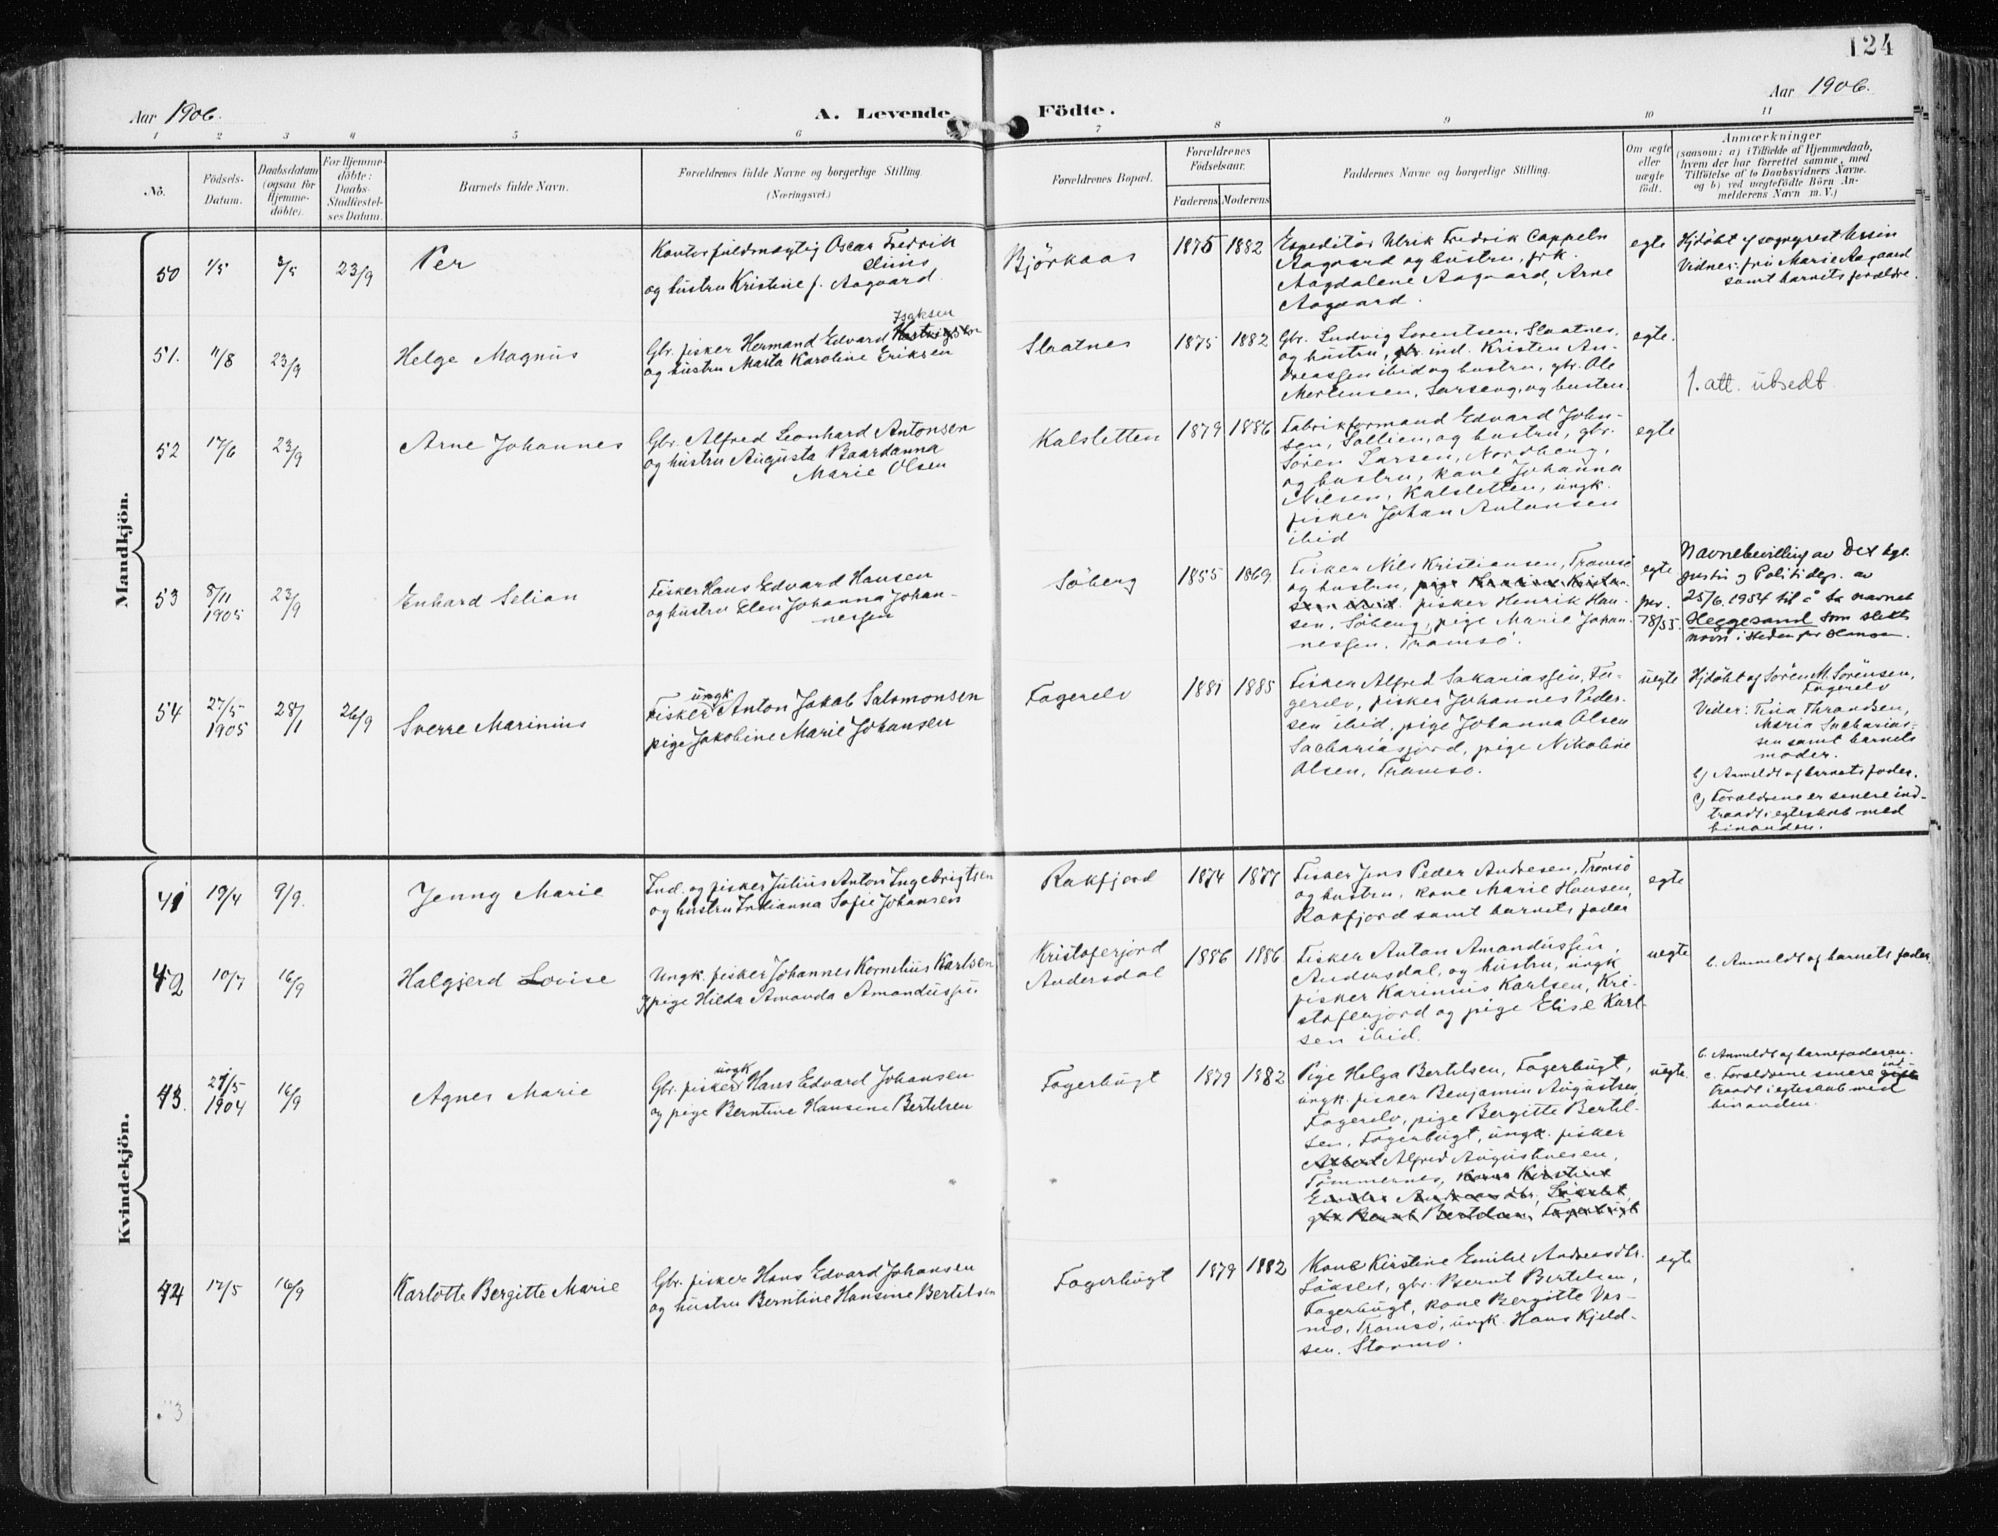 124
Aar 1906.
A. Levende Födte.
Aar 1906.
1 2 3 4 5 6 7 8 9 10 11
No.
Födsels-
Datum.
Daabsdatum
(ogsaa for
Hjemme-
döbte).
For Hjemme-
döbte:
Daabs-
Stadfæstel-
ses Datum.
Barnets fulde Navn.
Forældrenes fulde Navne og borgerlige Stilling.
(Næringsvei.)
Forældrenes Bopæl.
Forældrenes
Födselsaar.
Faderens Moderens
Faddernes Navne og borgerlige Stilling.
Om ægte
eller
uægte
födt.
Anmærkninger
(saasom: a) i Tilfælde af Hjemmedaab,
hvem der har forrettet samme, med
Tilföielse af to Daabsvidners Navne.
og b) ved uægtefödte Börn An-
melderens Navn m. V.)
Mandkjön.
50 1/5 3/5 23/9 Per
Kontorfuldmægtig Oscar Fredrik
og hustru Kristine f. Aagaard.
Björkaas 1875 1882
Expeditör Ulrik Fredrik Cappeln
Aagaard og hustru, frk.
Aagdalene Aagaard, Arne
Aagaard.
egte
Hjdöbt af sogneprest
Vidner: fru Marie Aagaard
samt barnets forældre.
51. 11/8 23/9 Helge Magnus
Isaksen
Gbr. fisker Hermand Edvard
og hustru Marta Karoline Eriksen
Slaatnes 1875 1882
Gbr. Ludvig Lorentsen, Slaatnes,
og hustru, ind. Kristen An-
dreassen ibid og hustru, gbr. Ole
Mortensen, Larseng, og hustru.
egte.
1. att. utstedt
52 17/6 23/9 Arne Johannes
Gbr. Alfred Leonhard Antonsen
og hustru Augusta Baardanna
Marie Olsen
Kalsletten 1879 1886
Fabrikformand Edvard John-
sen, Sollien, og hustru, gbr.
Sören Larsen, Nordberg,
og hustru, kone Johanna
Nilsen, Kalsletten, ungk.
fisker Johan Antonsen
ibid
egte
53 8/11
1905 23/9 Enhard Selian
Fisker Hans Edvard Hansen
og hustru Elen Johanna Johan-
nessen
Söberg 1855 1869
Fisker Nils Kristiansen, Tromsö
og hustru, pige
fisker Henrik Han-
sen, Söberg, pige Marie Johan-
nessen, Tromsö.
egte
78/55.
Navnebevilling av Det kgl.
justis og Politidep. av
25/6. 1954 til å ta navnet
Heggesand som slekts
navn i steden for Hansen.
54 27/5
1905 28/1 26/9 Sverre Marinius
ungk
Fisker Anton Jakob Salomonsen
pige Jakobine Marie Johansen
Fagerelv 1881 1885
Fisker Alfred Sakariassen, Fa-
gerelv, fisker Johannes Peder-
sen ibid, pige Johanna Olsen
Sachariasjord, pige Nikoline
Olsen, Tromsö.
uegte
Hjdöbt af Sören M. Sörensen,
Fagerelv
Vidner: Tina Thrandsen,
Maria Sacharias-
sen samt barnets
moder.
b) Anmeldt af barnets fader.
c) Forældrene er senere ind-
traadt i egteskab med
hinanden.
Kvindekjön.
41 19/4 9/9. Jenny Marie
Ind. og fisker Julius Anton Ingebrigtsen
og hustru Indianna Sofie Johansen
Rakfjord 1874 1877
Fisker Jens Peder Andresen, Tromsö
og hustru, kone Marie Hansen,
Rakfjord samt barnets fader
egte
42 10/7 16/9 Halgjerd Lovise
Ungk. fisker Johannes Kornelius Karlsen
pige Hilda Amanda Amandussen
Kristoferjord
Andersdal
1886 1886
Fisker Anton Amandussen,
Andersdal, og hustru, ungk
fisker Karinius Karlsen, Kri-
stoferjord og pige Elise Karl-
sen ibid.
uegte
b. Anmeldt af barnets fader.
43. 21/5
1904 16/9 Agnes Marie
ungk
Gbr. fisker Hans Edvard Johansen
og pige Berntine Hansine Bertelsen
Fagerbugt 1879 1882
Pige Helga Bertelsen, Fagerbugt,
ungk. fisker Benjamin Augustsen,
Fagerelv, pige Bergitte Bertel-
sen, Fagerbugt, ungk. fisker
Alfred Augustinesen,
Tömmernes, kone Kirstine
Emilie Andreasdtr., Lökslet,
gbr Bernt Bertelsen, Fagerbugt
uegte.
b. Anmeldt af barnefaderen.
c. Forældrene senere ind-
traadt i egteskab med
hinanden.
44 17/5 16/9 Karlotte Bergitte Marie
Gbr. fisker Hans Edvard Johansen
og hustru Berntine Hansine Bertelsen
Fagerbugt 1879 1882
Kone Kirstine Emilie Andreasdtr.
Lökslet, gbr. Bernt Bertelsen,
Fagerbugt, kone Bergitte Vas-
mo, Tromsö, ungk. Hans Kjeld-
sen, Stormo.
egte